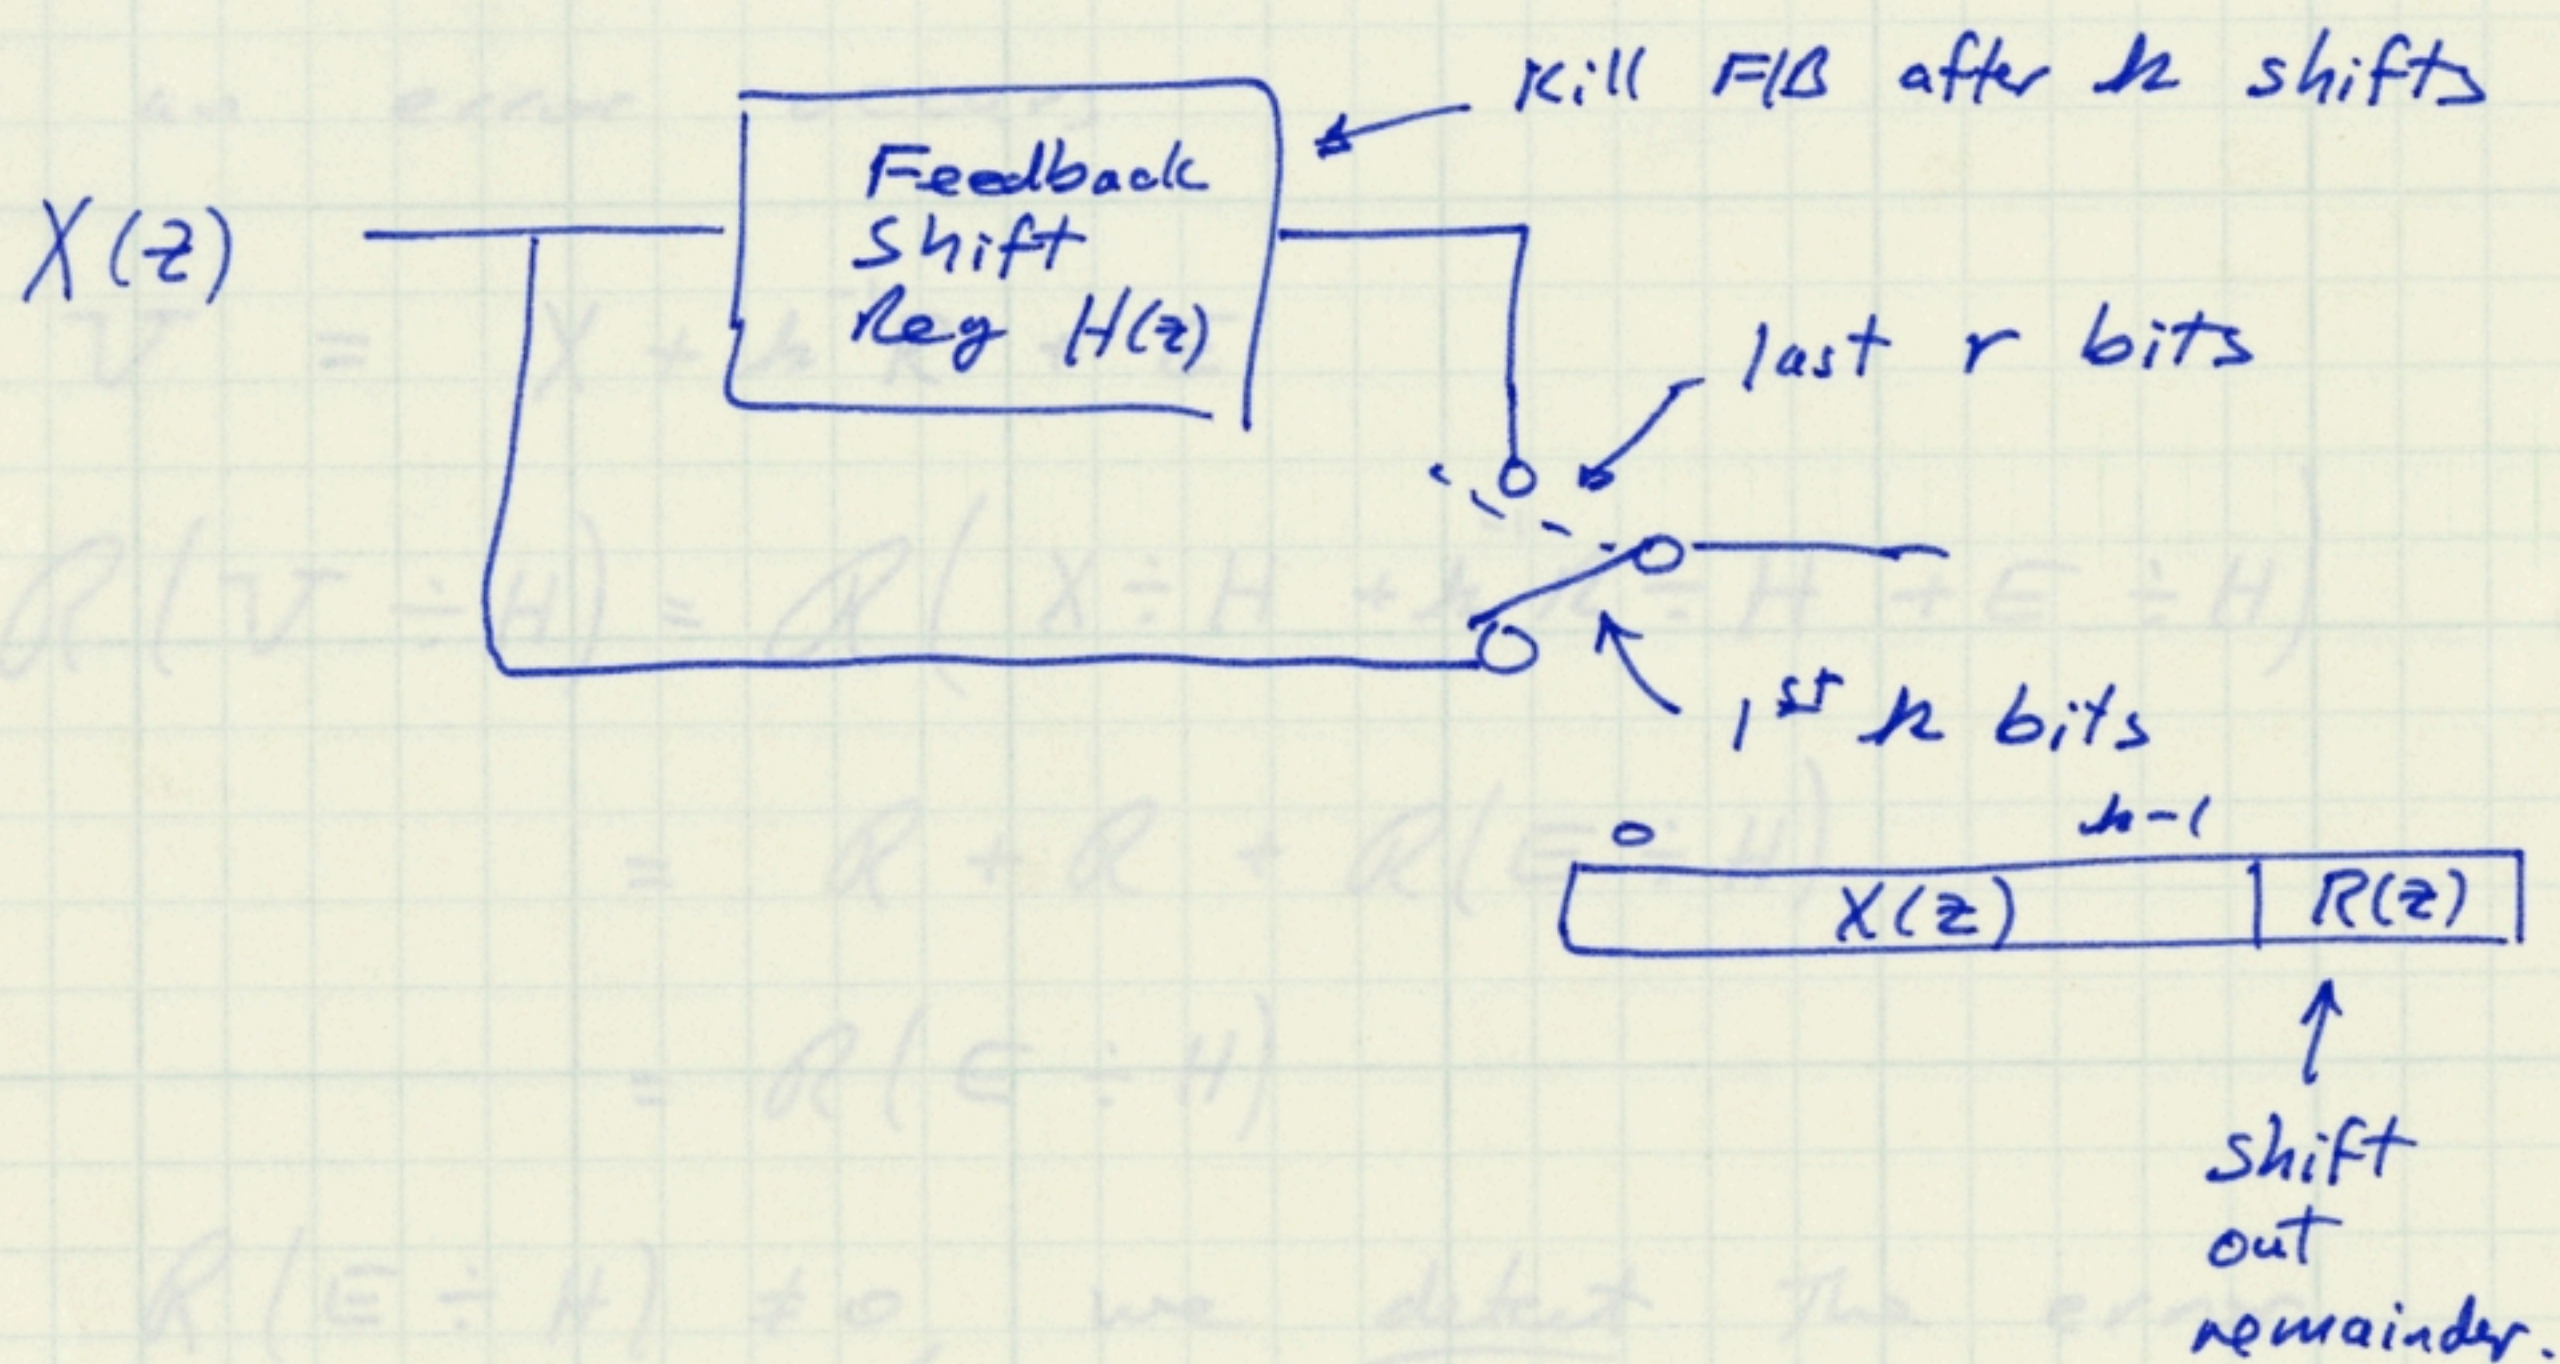 Kill F/B after k shifts
Feedback
Shift
Reg H(z)
X(z)
last r bits
1st k bits
0 k-1
X(z) R(z)
shift
out
remainder.